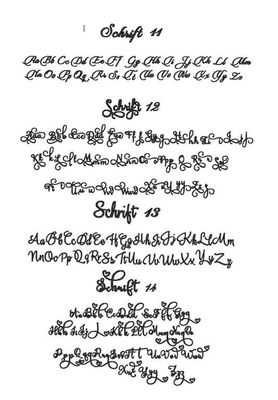 Schrift 11
Aa Bb Cc Dd Ee Ff Gg Hh Ii Jj Kk Ll Mm
Nn Oo Pp Qq Rr Ss Tt Uu Vv Ww Xx Yy Zz
Schrift 12
Aa Bb Cc Dd Ee Ff Gg Hh Ii Jj
Kk Ll Mm Nn Oo Pp Qq Rr Ss
Tt Uu Vv Ww Xx Yy Zz
Schrift 13
Aa Bb Cc Dd Ee Ff Gg Hh Ii Jj Kk Ll Mm
Nn Oo Pp Qq Rr Ss Tt Uu Vv Ww Xx Yy Zz
Schrift 14
Aa Bb Cc Dd Ee Ff Gg
Hh Ii Jj Kk Ll Mm Nn Oo
Pp Qq Rr Ss Tt Uu Vv Ww
Xx Yy Zz